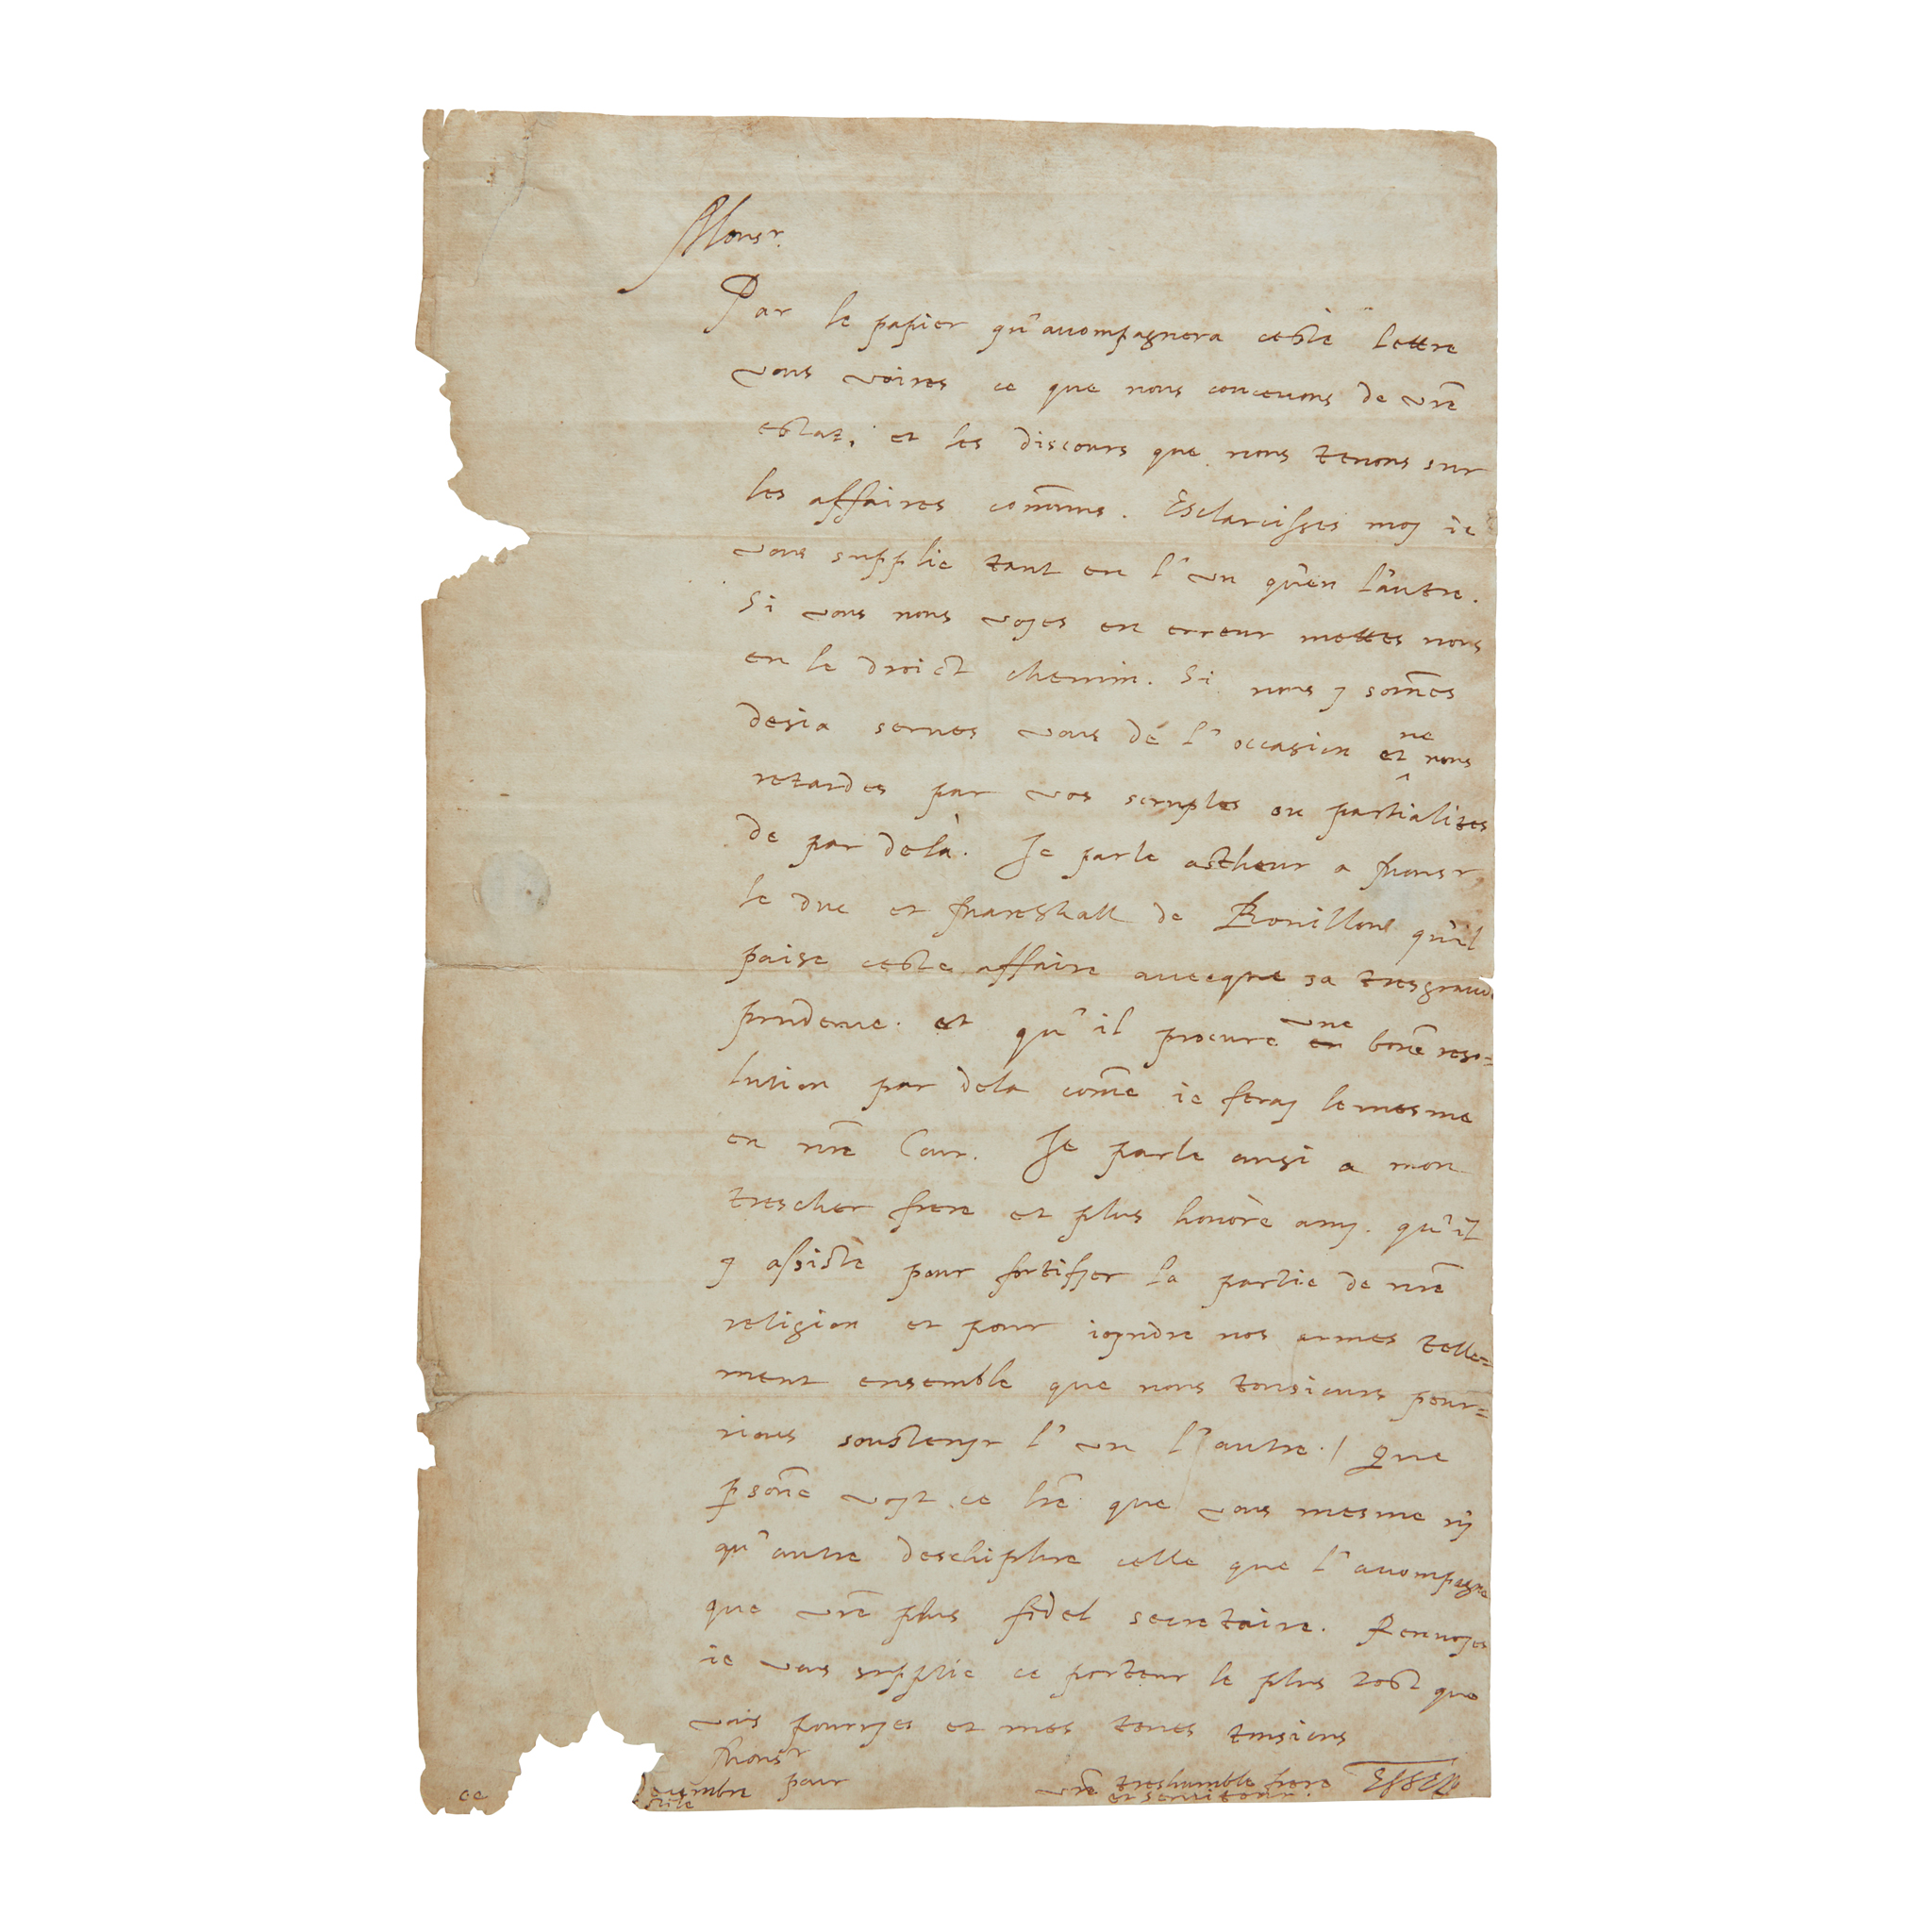 Monsr.
Par le papier qu'accompagnera ceste lettre
vous voires ce que nous concevons de vr̄e
estat, et les discours que nous tenons sur
les affaires com̄uns. Esclarcisses moy ie
vous supplie tant en l'vn qu'en l'autre.
Si vous nous voyes en erreur mettes nous
en le droict chemin. Si nous y som̄es
desia serues vous de l'occasion et ne nous
retardes par vos scruples ou partialites
de par dela. Je parle astheur a Monsr
le duc et Mareshall de Bouillon qu'il
paise ceste affaire auecque sa tresgrande
prudence. et qu'il procure en vne bon̄e reso=
lution par dela com̄e ie feray le mesme
en nr̄e Cour. Je parle ausi a mon
trescher frere et plus honorè amy. qu'il
y assistè pour fortifyer la partie de nr̄e
religion et pour ioyndre nos armes telle=
ment ensemble que nous tousiours pour=
rions soustenyr l'vn l'autre./ Que
pson̄e voyt ce lr̄e que vous mesme ny
qu'autre deschiphre celle que l'accompagne
que vr̄e plus fidel secretaire. Renuoyes
ie vous supplie ce porteur le plus tost que
vous pourryes et mes toues tousiours
Monsr
ce decembre pour vr̄e treshumble frere Essex
stile et seruiteur.